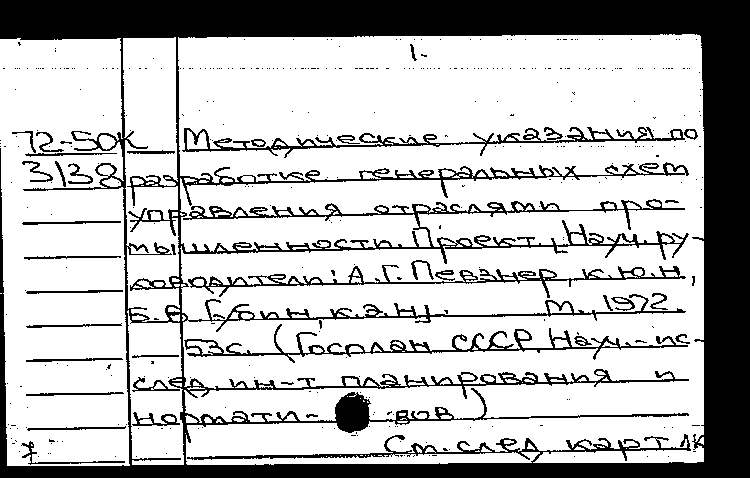 1.
72-50К Методические указания по
3138 разработке генеральных схем
управления отраслями про-
мышленности. Проект. [Науч. ру-
ководители: А.Г. Певзнер, к.ю.н,
Б.В. Губин, к.э.н]. М., 1972.
53с. (Госплан СССР. Науч.-ис-
след. ин-т планирования и
нормати- вов)
См. след карт